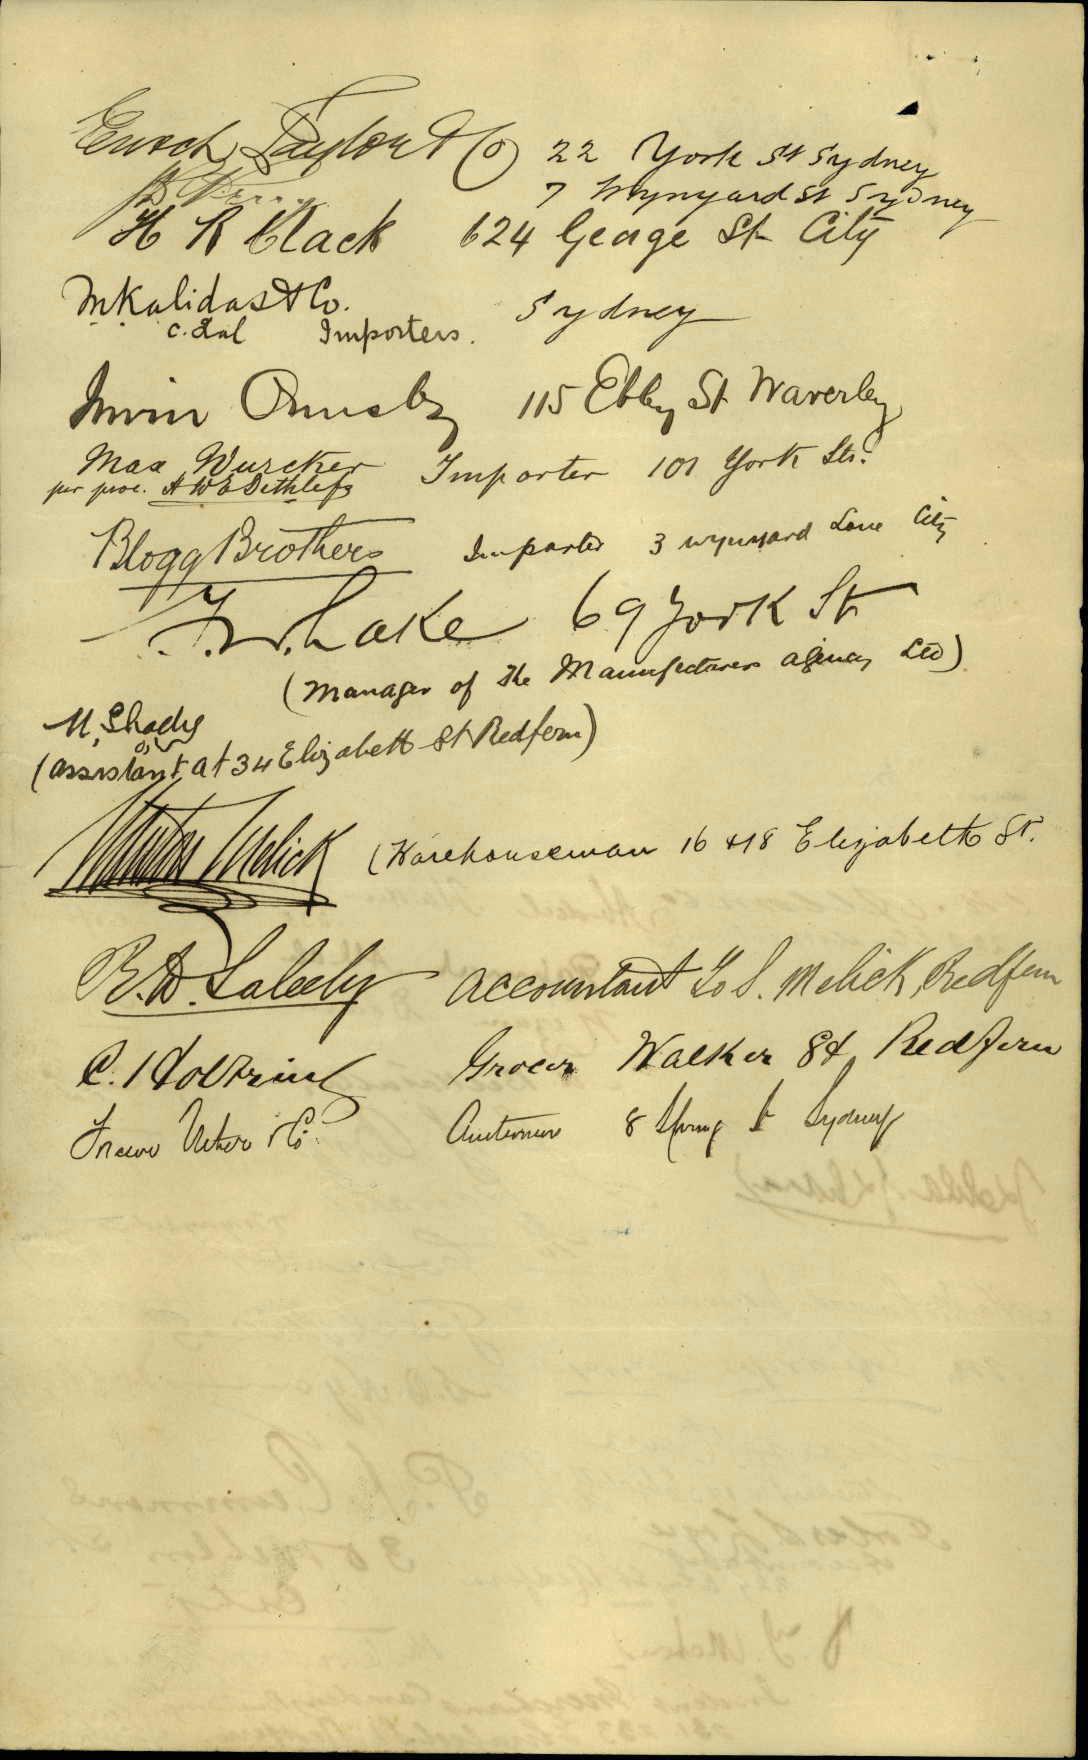 Enoch Taylor & Co 22 York St Sydney
7 Wynyard St Sydney
H R Clack 624 George St City
M Kalidas & Co. Sydney
C. Lal Importers.
Ormsby 115 Ebley St Waverley
Max Wurcker Importer 101 York Str.
per proc. A W E Dethlefs
Blogg Brothers Importer 3 Wynyard Lane City
F. W. Lake 69 York St
(Manager of The Manufacturers Agency Ltd)
M. Shady
(assistant at 34 Elizabeth St Redfern)
Melick (Warehouseman 16 & 18 Elizabeth St.
R. D. Saleeby Accountant To S. Melick, Redfern
C. Holtring Grocer Walker St, Redfern
& Co. 8 Spring St Sydney